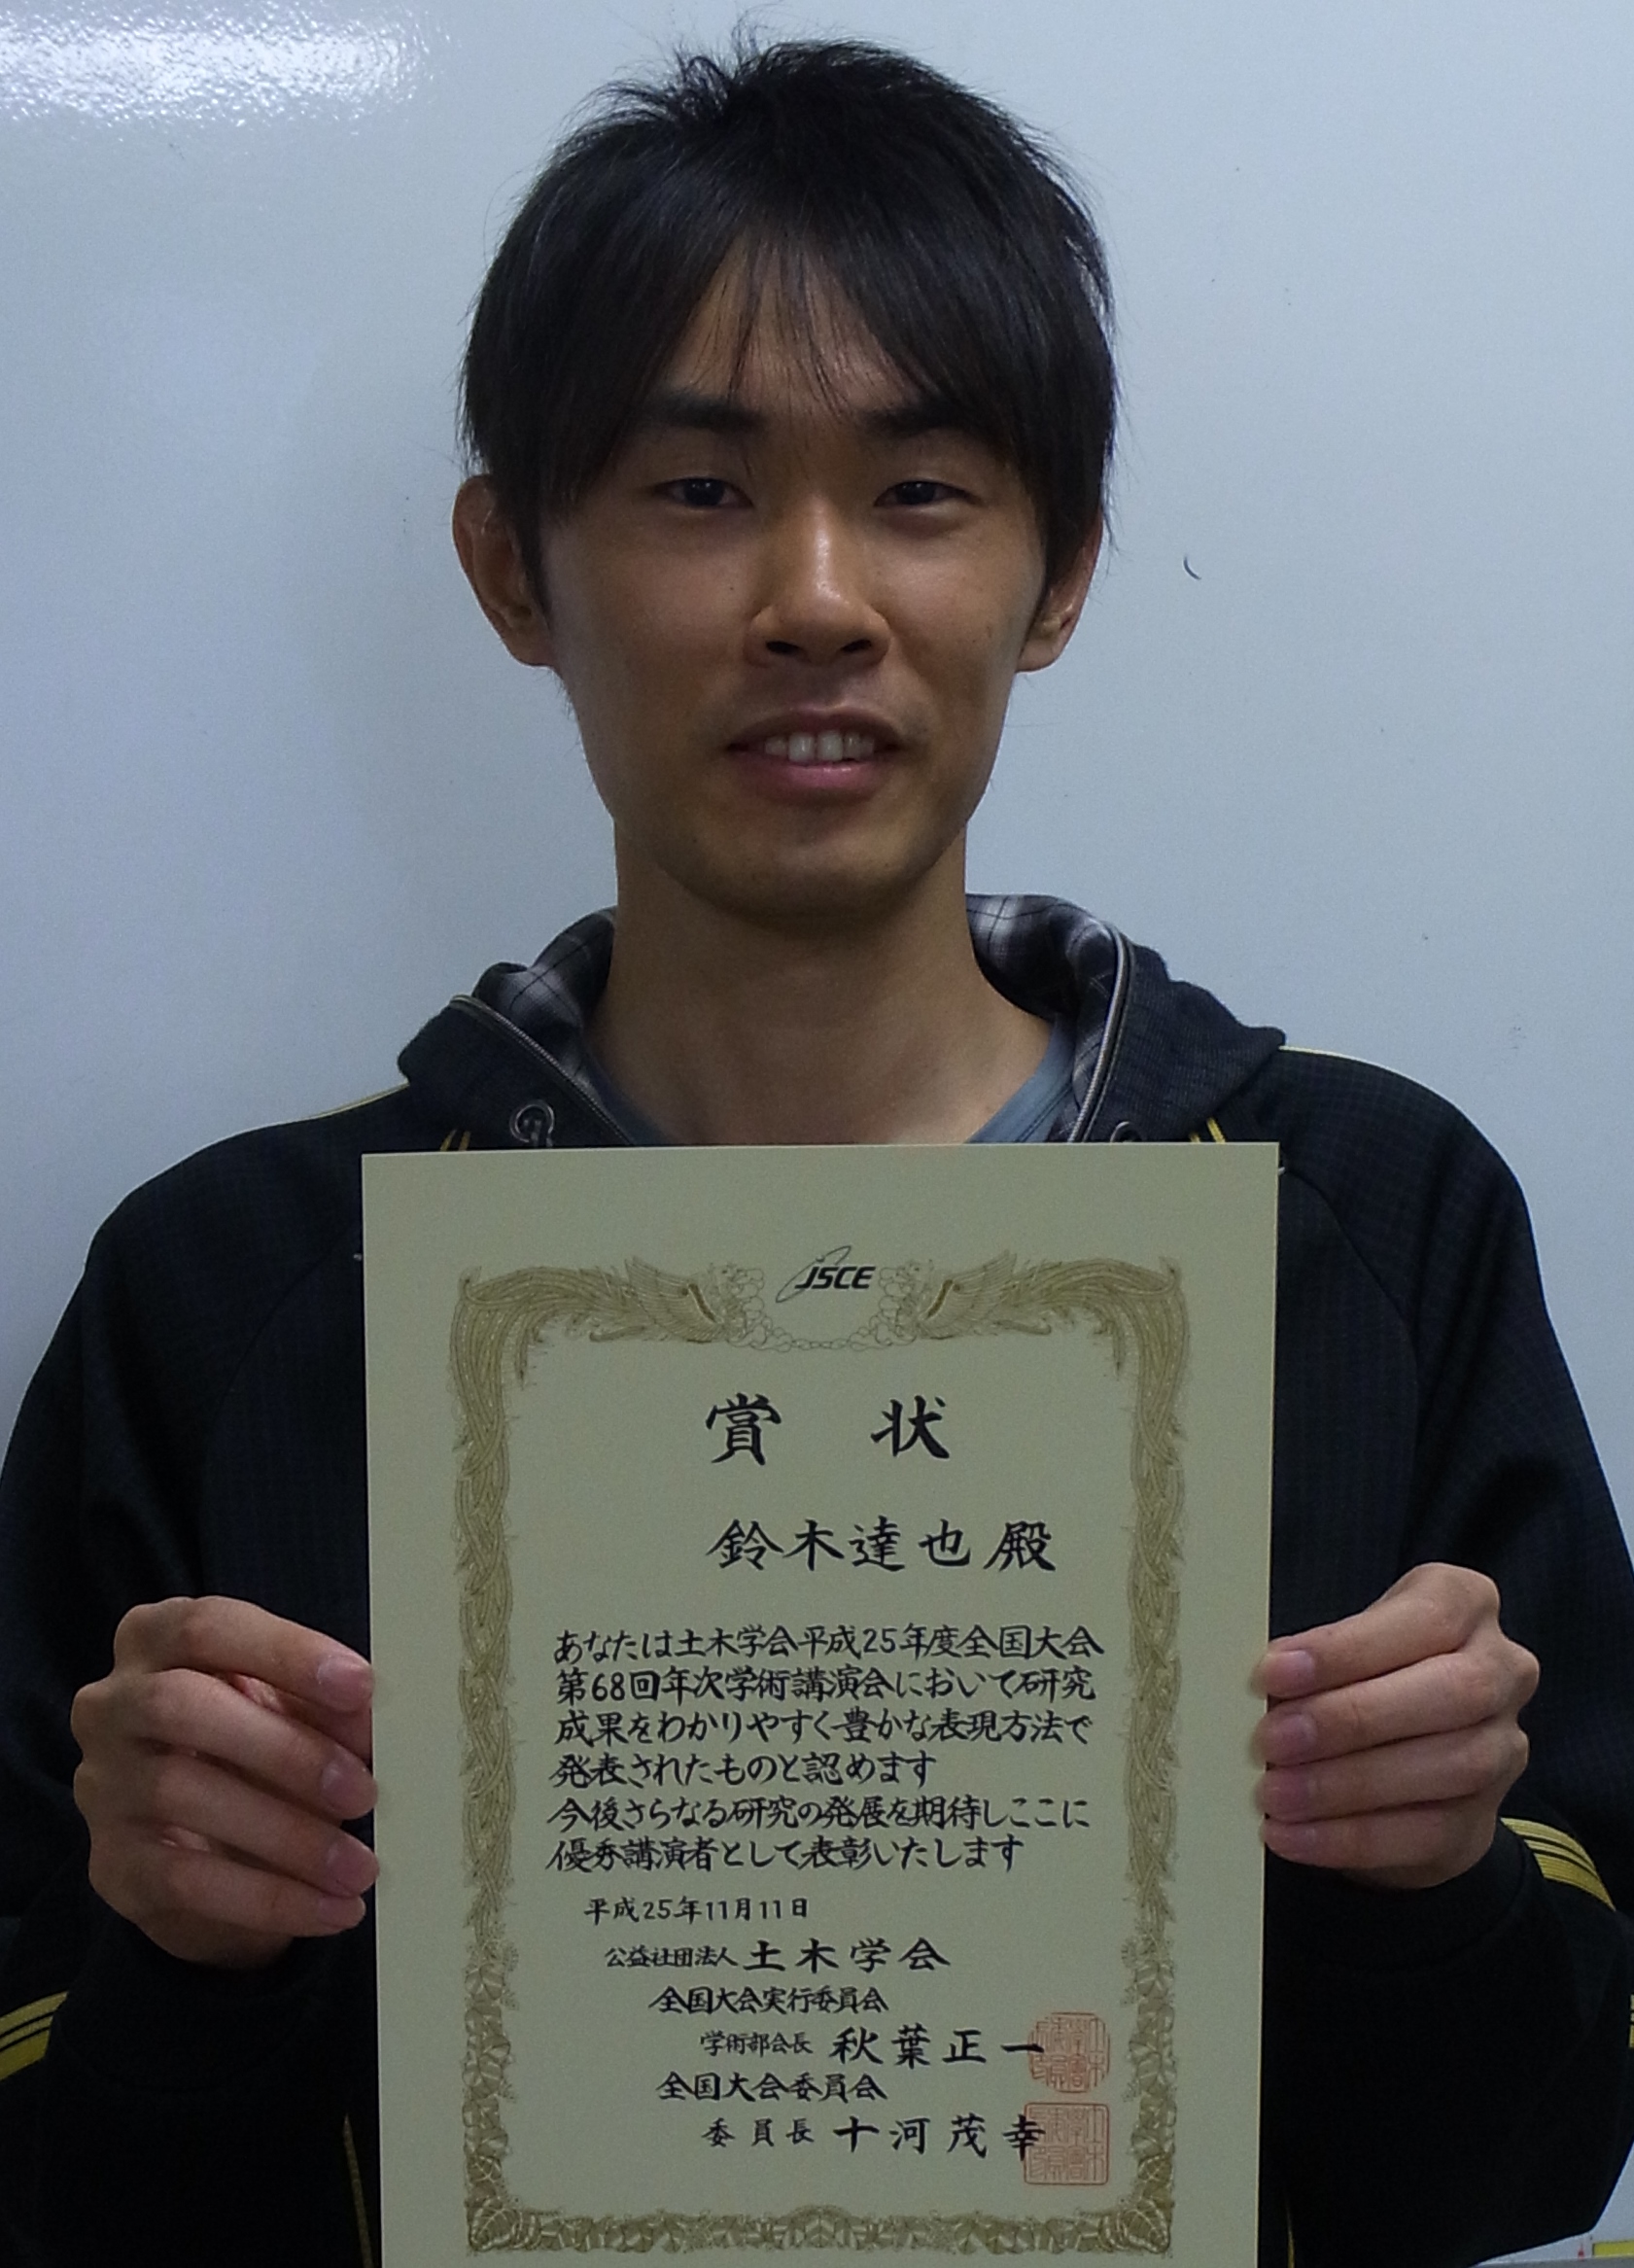 JSCE
賞状
鈴木達也殿
あなたは土木学会平成25年度全国大会
第68回年次学術講演会において研究
成果をわかりやすく豊かな表現方法で
発表されたものと認めます
今後さらなる研究の発展を期待しここに
優秀講演者として表彰いたします
平成25年11月11日
公益社団法人 土木学会
全国大会実行委員会
学術部会長 秋葉正一
全国大会委員会
委員長 十河茂幸